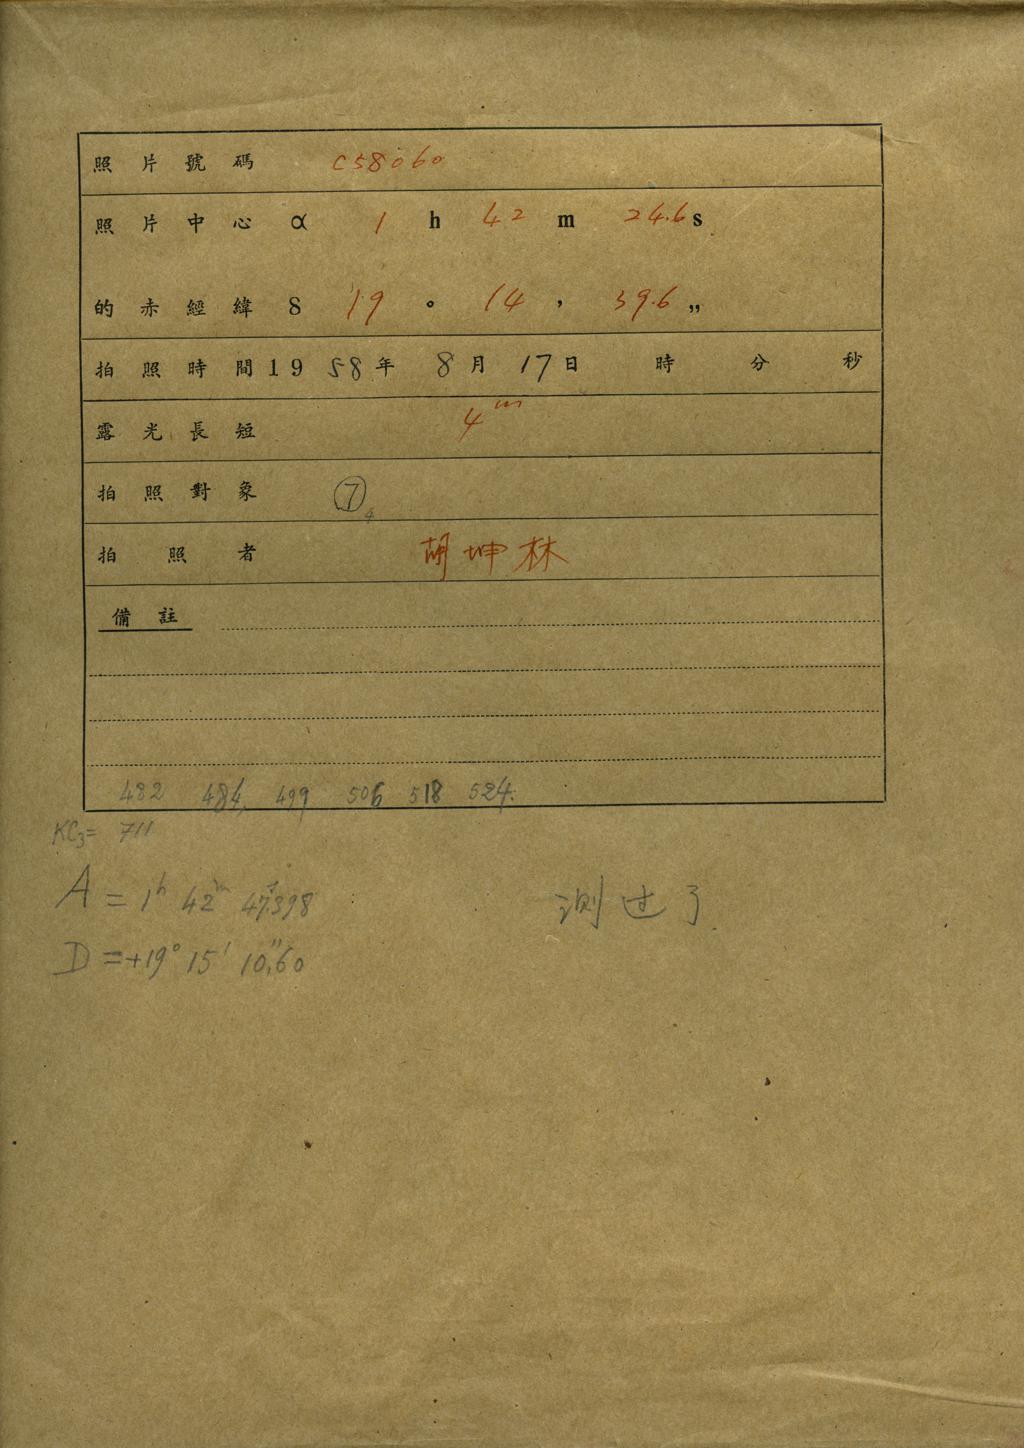 照片號碼 C58060
照片中心 α 1 h 42 m 24.6 s
的赤經緯 δ 19 ° 14 ′ 39.6 ″
拍照時間 1958年 8月 17日 時 分 秒
露光長短 4m
拍照對象 ⑦4
拍照者 胡坤林
備註
482 484, 499 506 518 524.
KC3= 711
A = 1h 42m 47s.398
D = +19° 15′ 10″.60
测过了